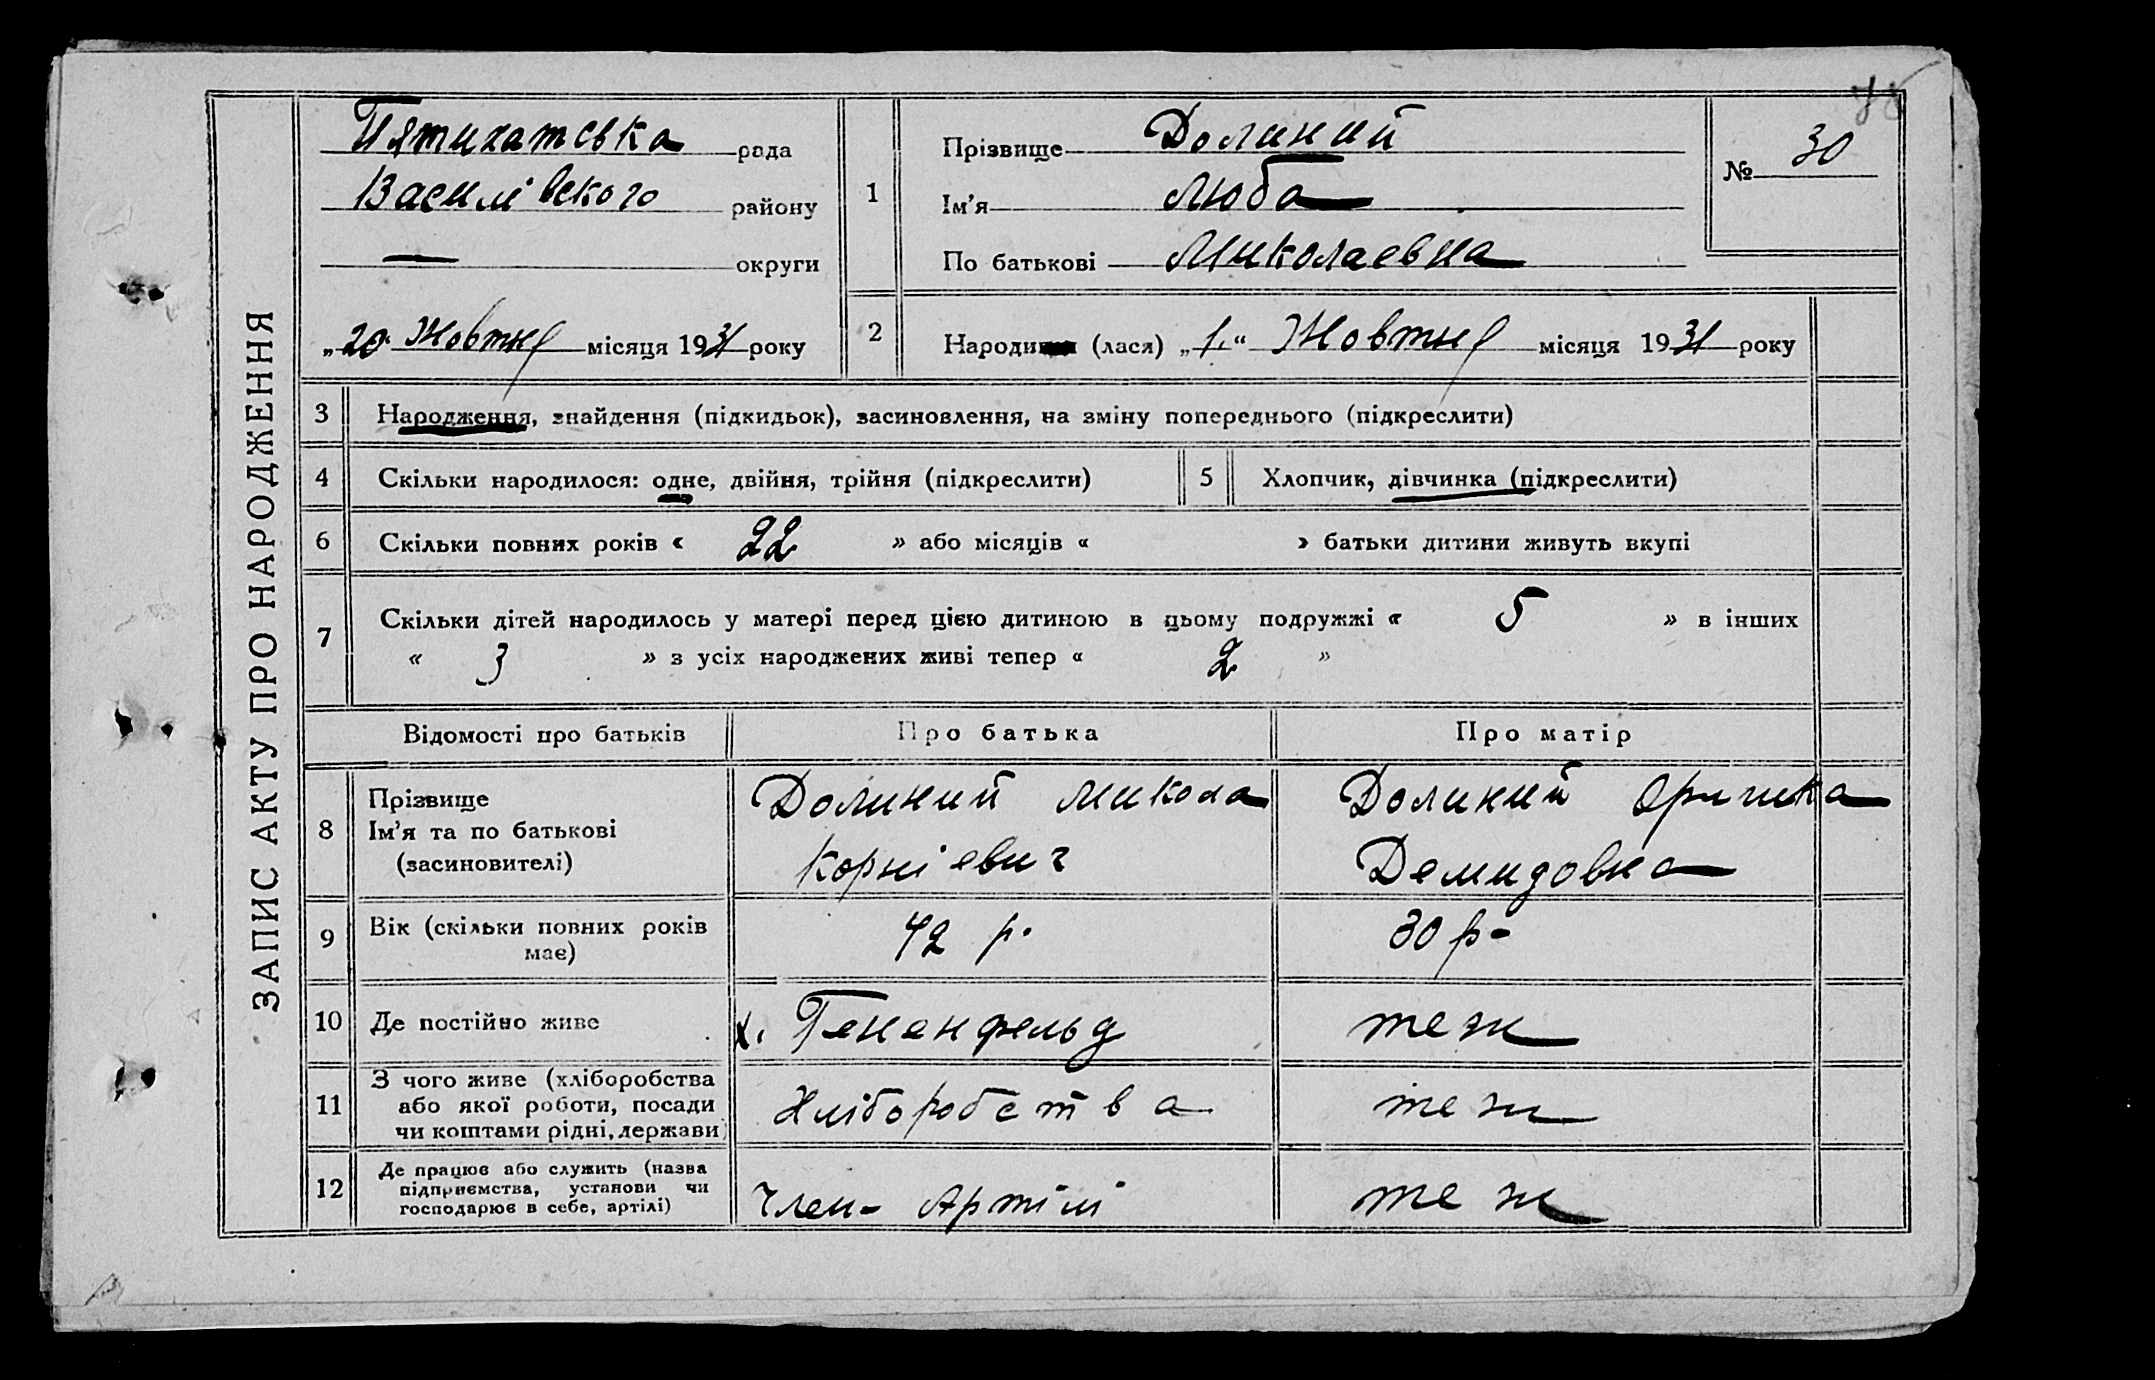 ЗАПИС АКТУ ПРО НАРОДЖЕННЯ
Пятихатська рада
Василівского району
— округи
„20“ Жовтня місяця 1931 року
1
Прізвище Долиний
Ім’я Люба
По батькові Миколаевна
№ 30
2
Народи (лася) „1.“ Жовтня місяця 1931 року
3 Народження, знайдення (підкидьок), засиновлення, на зміну попереднього (підкреслити)
4 Скільки народилося: одне, двійня, трійня (підкреслити)
5 Хлопчик, дівчинка (підкреслити)
6 Скільки повних років « 22 » або місяців « » батьки дитини живуть вкупі
7 Скільки дітей народилось у матері перед цією дитиною в цьому подружжі « 5 » в інших
« 3 » з усіх народжених живі тепер « 2 »
Відомості про батьків Про батька Про матір
8
Прізвище
Ім’я та по батькові
(засиновителі)
Долиний Микола
Корніевич
Долиний
Демидовна
9
Вік (скільки повних років
має)
42 р.
30 р-
10 Де постійно живе
х. Гененфельд
теж
11
З чого живе (хліборобства
або якої роботи, посади
чи коштами рідні, держави)
Хліборобства
теж
12
Де працює або служить (назва
підприємства, установи чи
господарює в себе, артілі)
Член- Артілі
теж